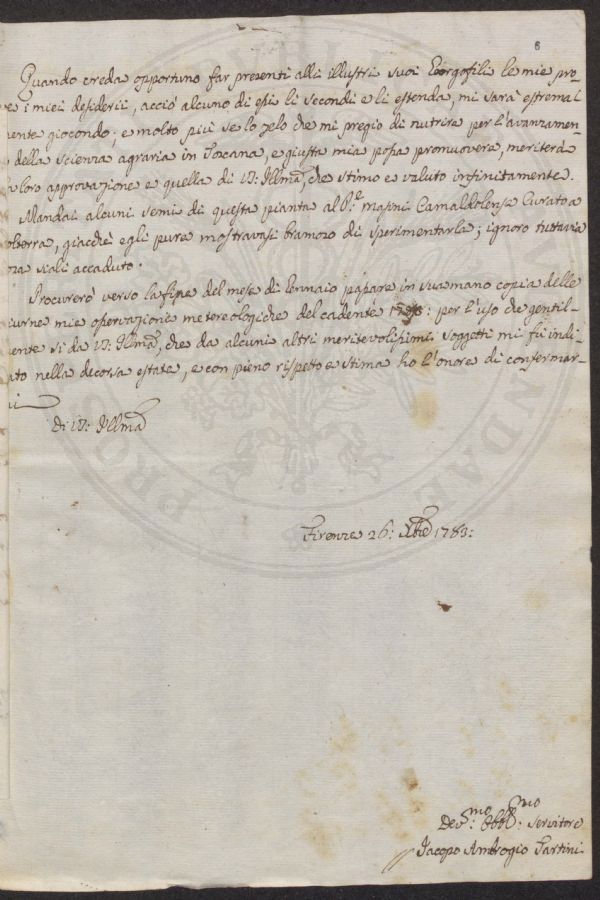 8
Quando creda opportuno far presenti alli illustri suoi Georgofili le mie pro-
ve i miei desiderii, acciò alcuno di essi li secondi e li estenda, mi sarà estrema
mente giocondo; e molto più se lo zelo che mi pregio di nutrire per l'avanzamen-
della scienza agraria in Toscana, e giusta mia possa promuovere, meriterà
loro approvazione e quella di V: Illma, che stimo e valuto infinitamente.
Mandai alcuni semi di questa pianta al P.e Masini Camaldolense Curato a
giacchè egli pure mostravasi bramoso di sperimentarla; ignoro tuttavia
siali accaduto.
Procurerò verso la fine del mese di Gennaio passare in sua mano copia delle
iurne mie osservazioni metereologiche del cadente per l'uso che gentil-
mente si da V: Illma, che da alcuni altri meritevolissimi soggetti mi fù indi-
ato nella decorsa estate, e con pieno rispetto e stima ho l'onore di confermar-
Di V: Illma
Firenze 26: 1783:
Dev:mo Obbl:mo Servitore
Jacopo Ambrogio Tartini